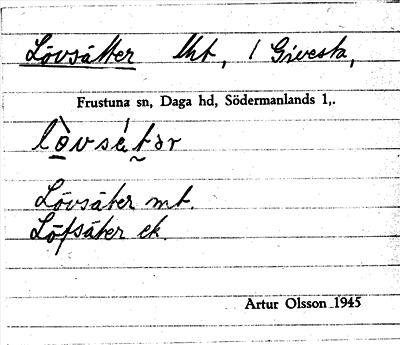 Lövsätter lht, / Givesta,
Frustuna sn, Daga hd, Södermanlands l,.
lò̱vsétər
Lövsäter mt.
Löfsäter ek.
Artur Olsson 1945